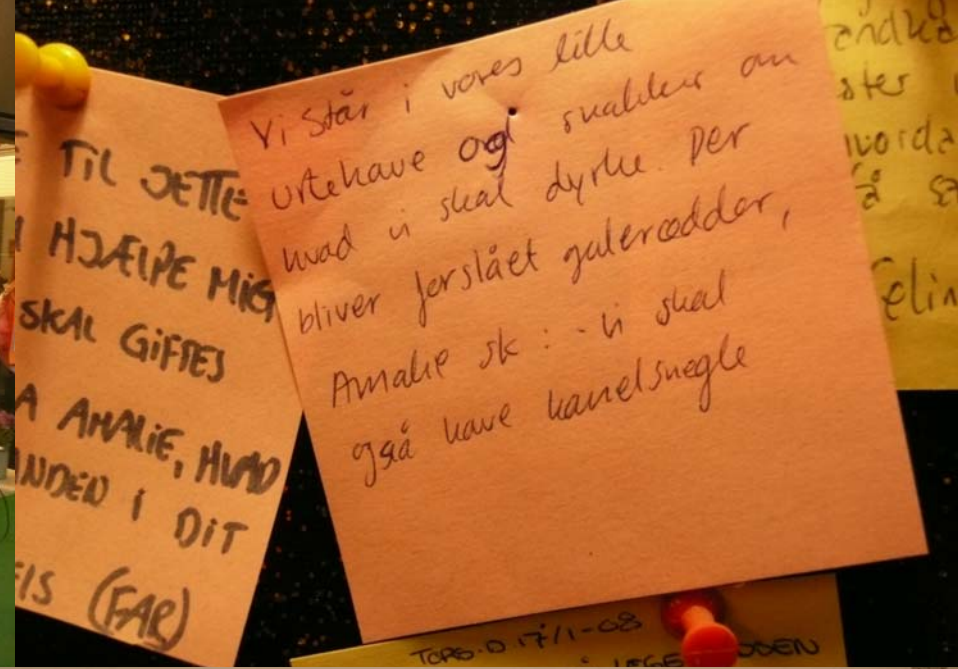 TIL JETTE
HJÆLPE MIG
SKAL GIFTES
A AMALIE, HVAD
NDEN I DIT
EIS (FAR)
Vi står i vores lille
urtehave og snakker om
hvad vi skal dyrke. Der
bliver forslået gulerødder,
Amalie sk : - vi skal
også have kanelsnegle
TORS. D 17/1-08